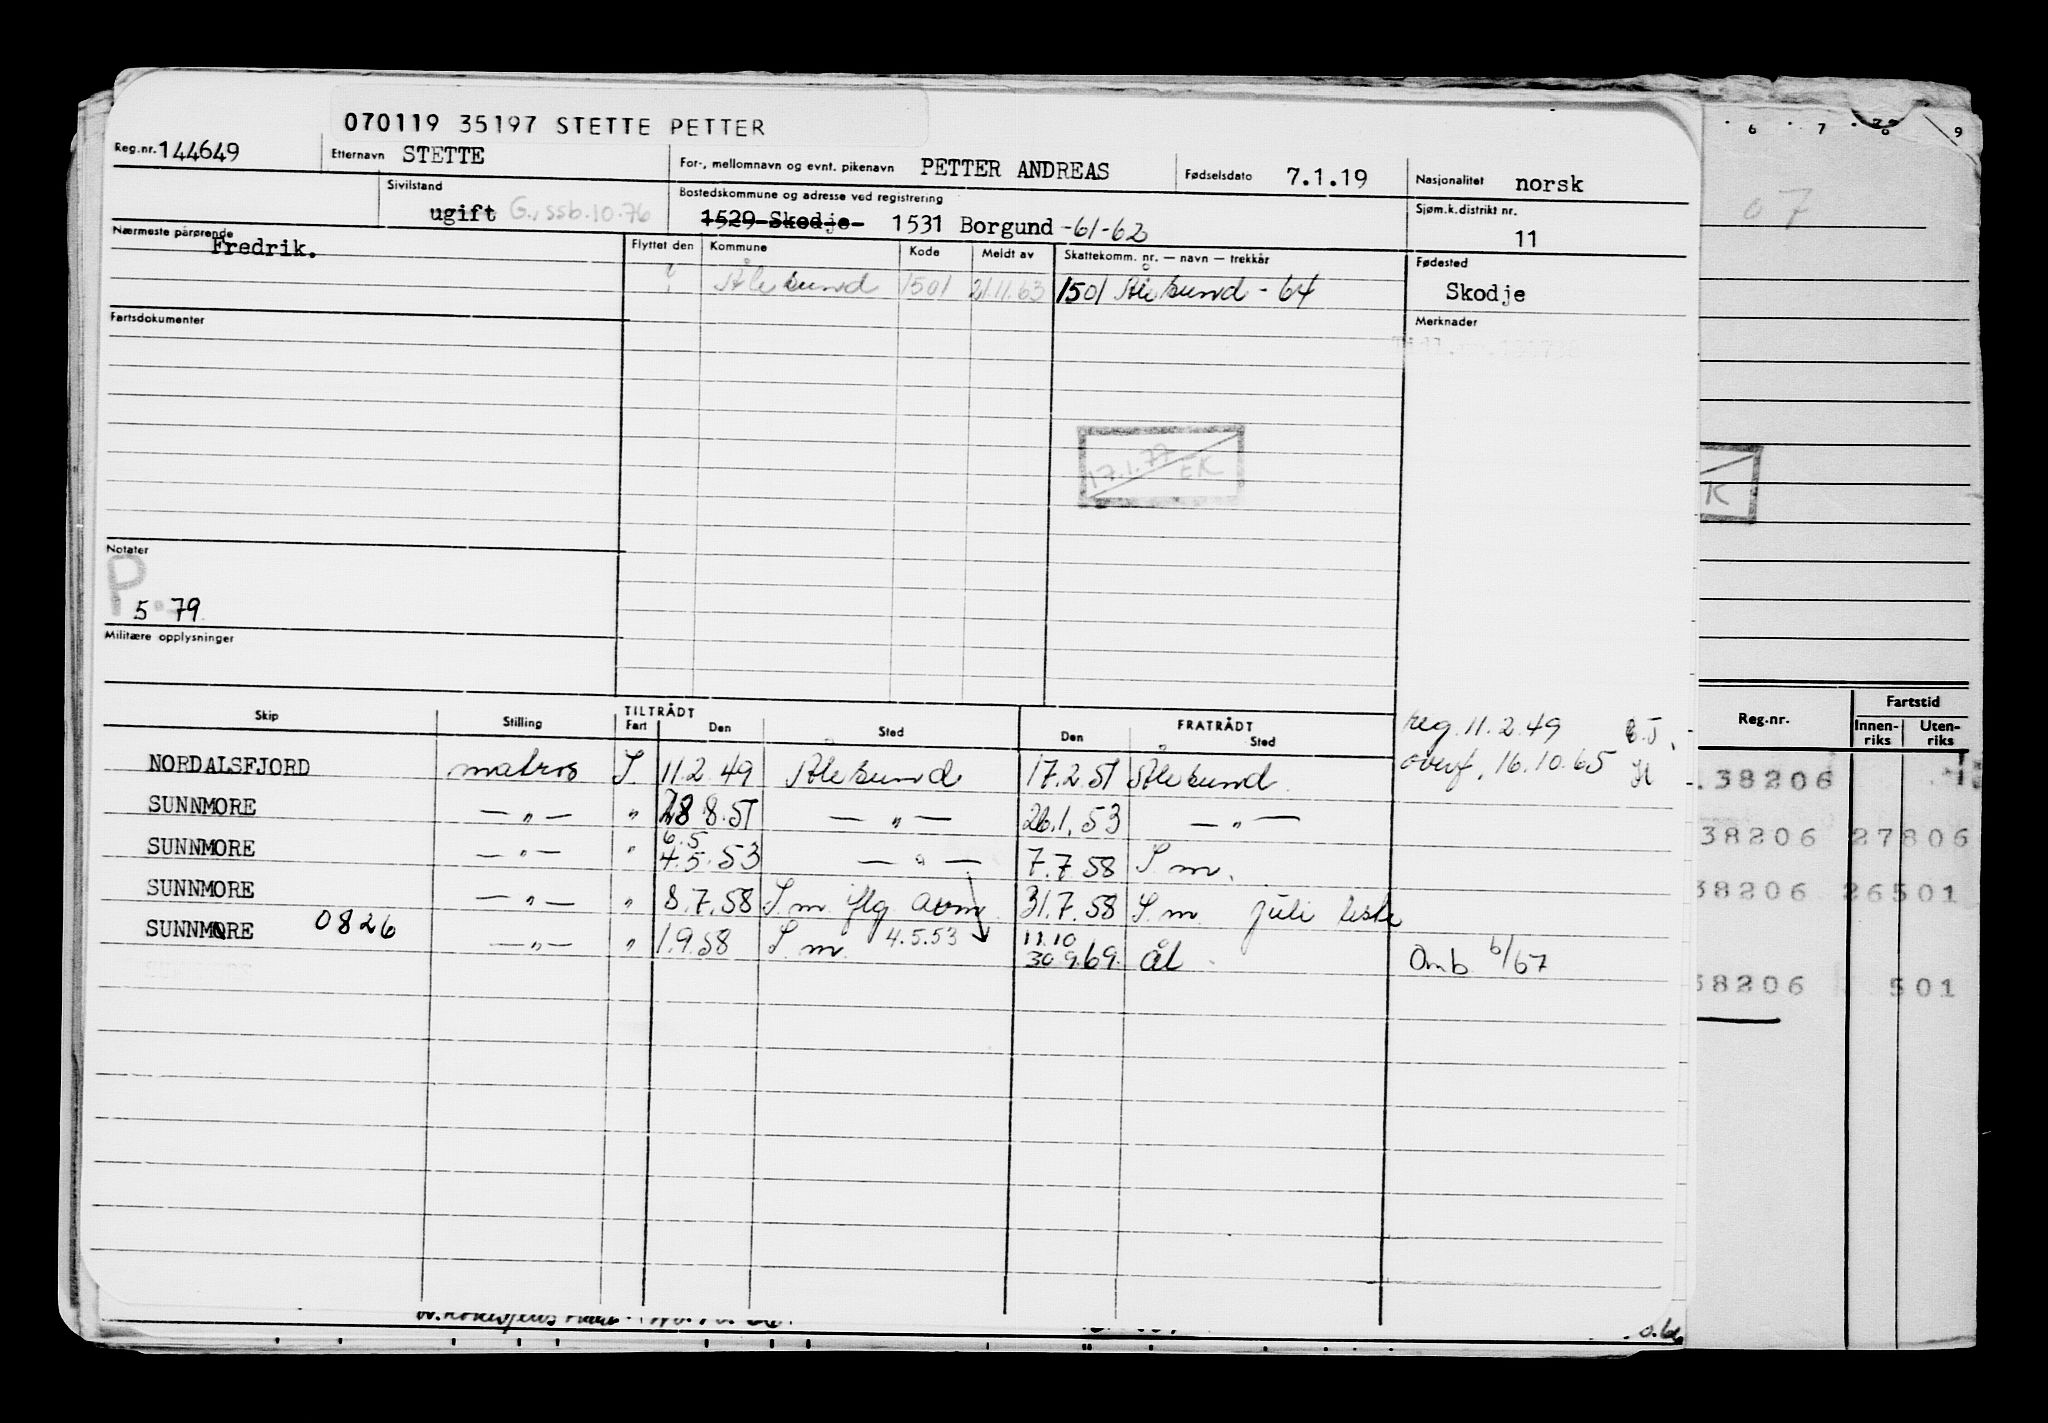 070119 35197 STETTE PETTER
Reg.nr. 144649
Etternavn STETTE
For-, mellomnavn og evnt. pikenavn PETTER ANDREAS
Fødselsdato 7.1.19
Nasjonalitet norsk
Sivilstand
ugift G., ssb. 10-76
Bostedskommune og adresse ved registrering
1529 Skodje 1531 Borgund -61-62
Sjøm.k.distrikt nr.
11
Nærmeste pårørende
Fredrik.
Flyttet den Kommune Kode Meldt av Skattekomm. nr. — navn — trekkår
Ålesund 1501 21.11.63 1501 Ålesund - 64
Fødested
Skodje
Fartsdokumenter
Merknader
17.1.77 EK
Notater
P.
5 79
Militære opplysninger
TILTRÅDT FRATRÅDT
Skip Stilling Fart Den Sted Den Sted
reg. 11.2.49
overf. 16.10.65
NORDALSFJORD matros S 11.2.49 Ålesund 17.2.51 Ålesund
SUNNMORE — „ — „ 28 8.51 — „ — 26.1.53 — „ —
6.5
SUNNMORE — „ — „ 4.5.53 — „ — 7.7.58 S.m.
SUNNMORE — „ — „ 8.7.58 S.m. flg 31.7.58 S.m. juli liste
SUNNMORE 0826 — „ — „ 1.9.58 S.m. 4.5.53 11.10 30.9.69. ål. Omb 6/67
6 7 8 9
07
K
Reg.nr. Fartstid
Innenriks Utenriks
.38206
38206 27806
38206 26501
38206 501